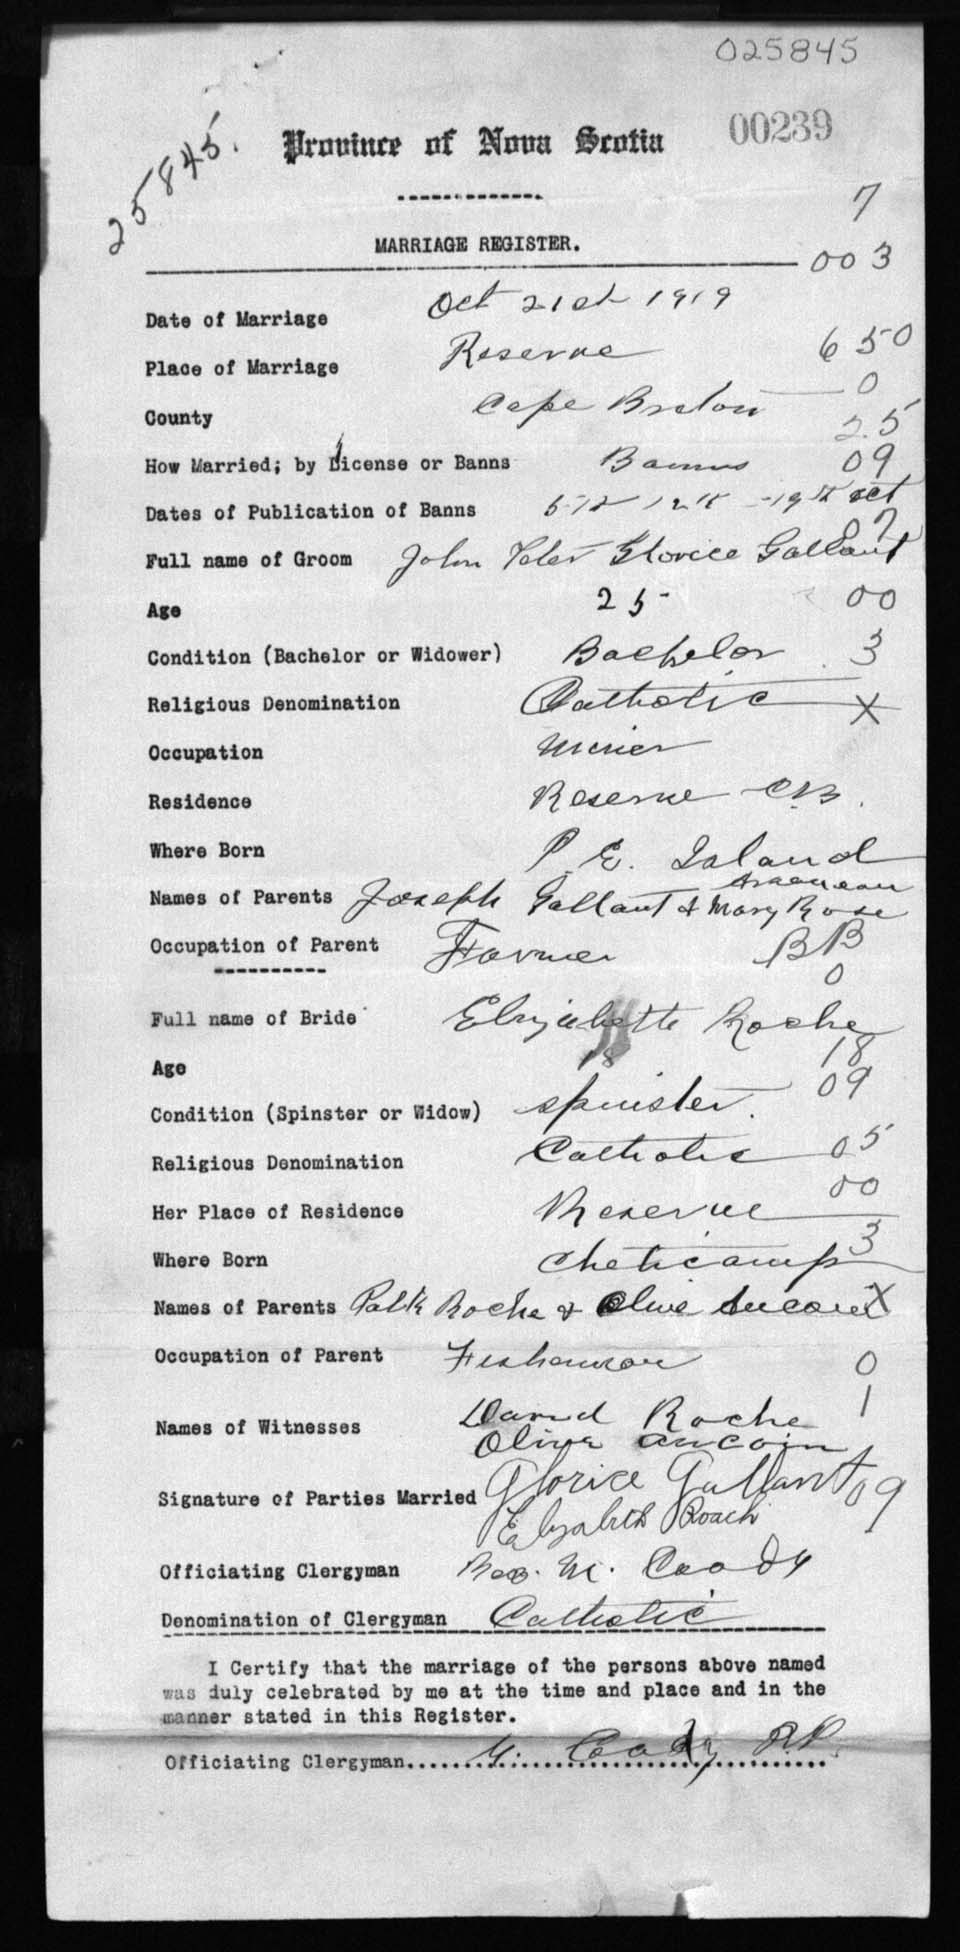 025845
00239
25845.
Province of Nova Scotia
7
MARRIAGE REGISTER.
003
Date of Marriage Oct 21st 1919
Place of Marriage Reserve 650
0
County Cape Breton 25
How Married; by License or Banns Banns 09
Dates of Publication of Banns 5th 12th - 19th Oct
07
Full name of Groom John Peter Glorice Gallant
Age 25 00
Condition (Bachelor or Widower) Bachelor 3
Religious Denomination Catholic X
Occupation Miner
Residence Reserve C.B.
Where Born P. E. Island
Arseneau
Names of Parents Joseph Gallant & Mary Rose
Occupation of Parent Farmer BB
0
Full name of Bride Elizabeth Roche
Age 18 18
09
Condition (Spinster or Widow) Spinster.
Religious Denomination Catholic 05
00
Her Place of Residence Reserve
3
Where Born Cheticamp
Names of Parents Patk Roche & Olive Aucoin X
Occupation of Parent Fisherman 0
1
Names of Witnesses David Roche
Olive Aucoin
Signature of Parties Married Glorice Gallant 09
Elizabeth Roach
Officiating Clergyman M. Coady
Denomination of Clergyman Catholic
I Certify that the marriage of the persons above named
was duly celebrated by me at the time and place and in the
manner stated in this Register.
Officiating Clergyman.....M. Coady P.P.